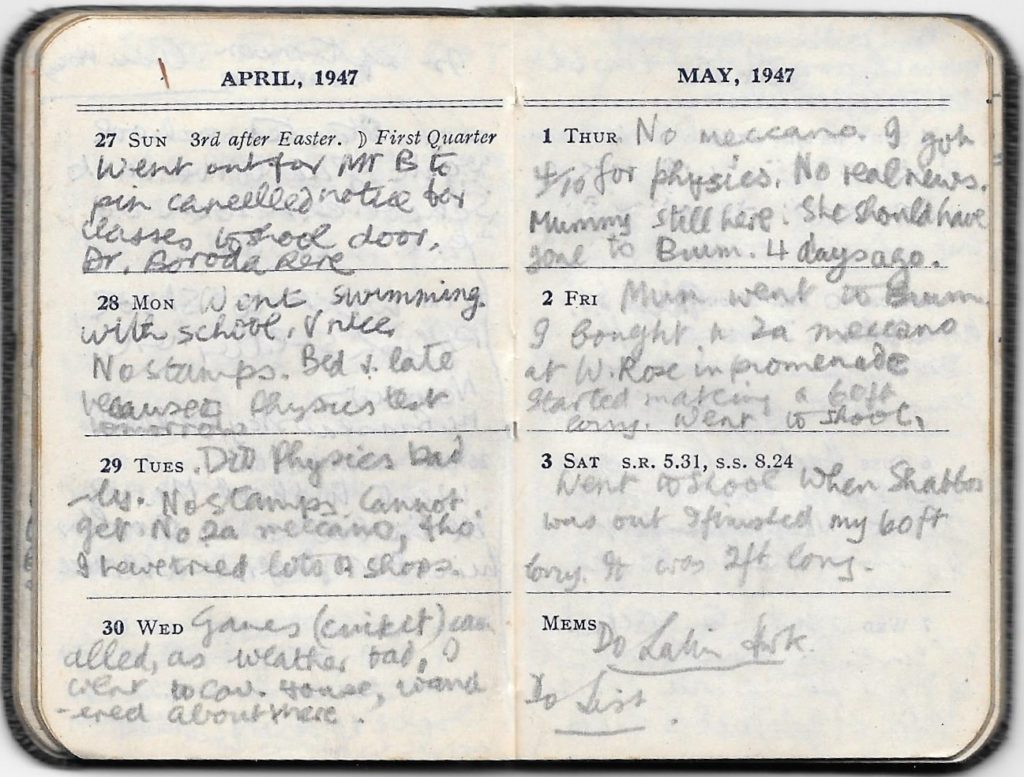 APRIL, 1947
27 SUN 3rd after Easter. ☽ First Quarter
Went out for Mr B to
pin cancelled notice for
classes to shool door,
Dr. Boroda here
28 MON Went swimming
with school. V nice.
No stamps. Bed v. late
because Physics test
tomorrow
29 TUES Did Physics bad
-ly. No stamps. Cannot
get No 2a meccano, tho
I have tried lots of shops.
30 WED Games (cricket) can
alled, as weather bad, I
went to Cav. House, wand
-ered about there.
MAY, 1947
1 THUR No meccano. I got
4/10 for physics. No real news.
Mummy still here. She should have
gone to Brum. 4 days ago.
2 FRI Mum went to Brum
I bought a 2a meccano
at W. Rose in promenade
Started making a 6oft
lorry. Went to shool,
3 SAT S.R. 5.31, S.S. 8.24
Went to shool When Shabbos
was out I finished my 6oft
lorry. It was 2ft long.
MEMS
Do Latin
Do List.